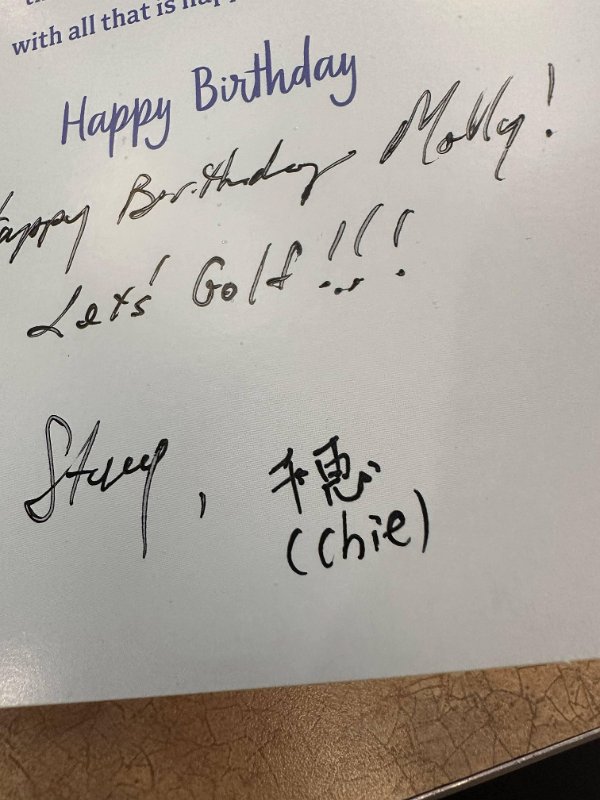 with all that is happ
Happy Birthday
Happy Birthday Molly!
Let's Golf!!!
, 千恵
(Chie)